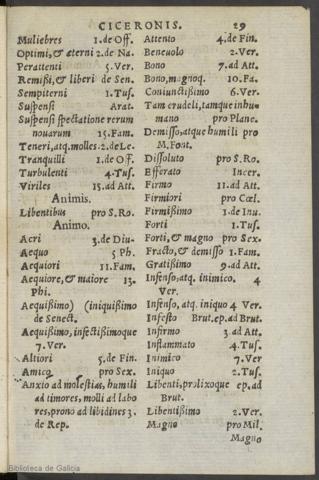 CICERONIS. 29
Muliebres 1.de Off.
Optimi,& æterni 2.de Na.
Perattenti 5.Ver.
Remißi,& liberi de Sen.
Sempiterni 1.Tus.
Suspensi Arat.
Suspensi spectatione rerum
nouarum 15.Fam.
Teneri,atq́.molles.2.de Le.
Tranquilli 1.de Off.
Turbulenti 4.Tus.
Viriles 15.ad Att.
Animis.
Libentibus pro S.Ro.
Animo.
Acri 3.de Diu-
Aequo 5 Ph.
Aequiori 11.Fam.
Aequiore,& maiore 13.
Phi.
Aequißimo) (iniquißimo
de Senect.
Aequißimo, infectißimoque
7.Ver.
Altiori 5.de Fin.
Amico pro Sex.
Anxio ad molestias, humili
ad timores, molli ad labo
res,prono ad libidines 3.
de Rep.
Attento 4.de Fin.
Beneuolo 2.Ver.
Bono 7.ad Att.
Bono,magnoq́. 10.Fa.
Coniunctißimo 6.Ver.
Tam crudeli,tamque inhu-
mano pro Planc.
Demisso,atque humili pro
M.Font.
Dissoluto pro S.Ro.
Efferato Incer.
Firmo 11.ad Att.
Firmiori pro Cœl.
Firmißimo 1.de Inu.
Forti 1.Tus.
Forti,& magno pro Sex.
Fracto,& demisso 1.Fam.
Gratißimo 9.ad Att.
Infenso,atq́. inimico. 4
Ver.
Infenso, atq́. iniquo 4 Ver.
Infesto Brut.ep.ad Brut.
Infirmo 3.ad Att.
Inflammato 4.Tus.
Inimico 7.Ver
Iniquo 2.Tus.
Libenti,prolixoque ep.ad
Brut.
Libentißimo 2.Ver.
Magno pro Mil.
Magno
Biblioteca de Galicia